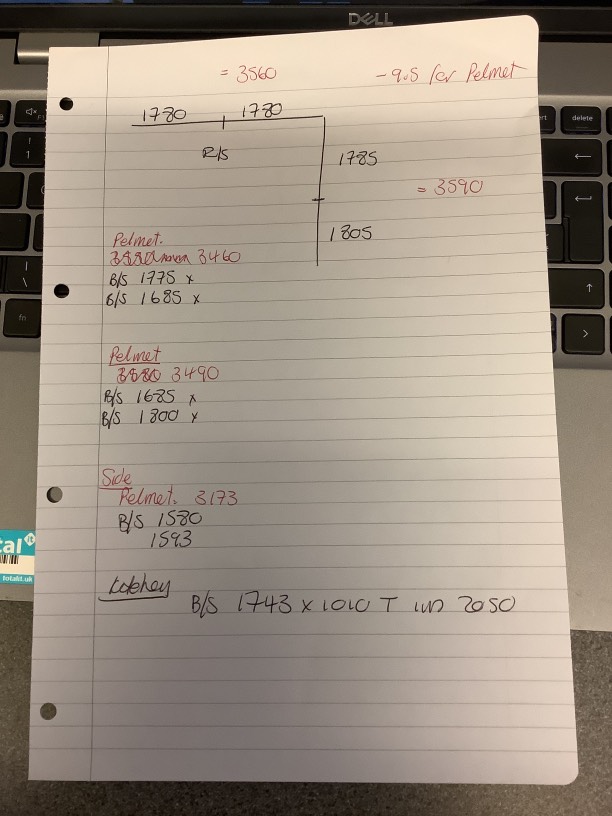 DELL
= 3560
-9.5 for Pelmet
1780 1780
R/S
1785
= 3590
1805
Pelmet.
3460
B/S 1775 x
B/S 1685 x
Pelmet
3490
B/S 1685 x
B/S 1800 x
Side
Pelmet. 3173
B/S 1580
1593
B/S 1743 x 1010 T 2050
delete
fn
tal it
totalit.uk